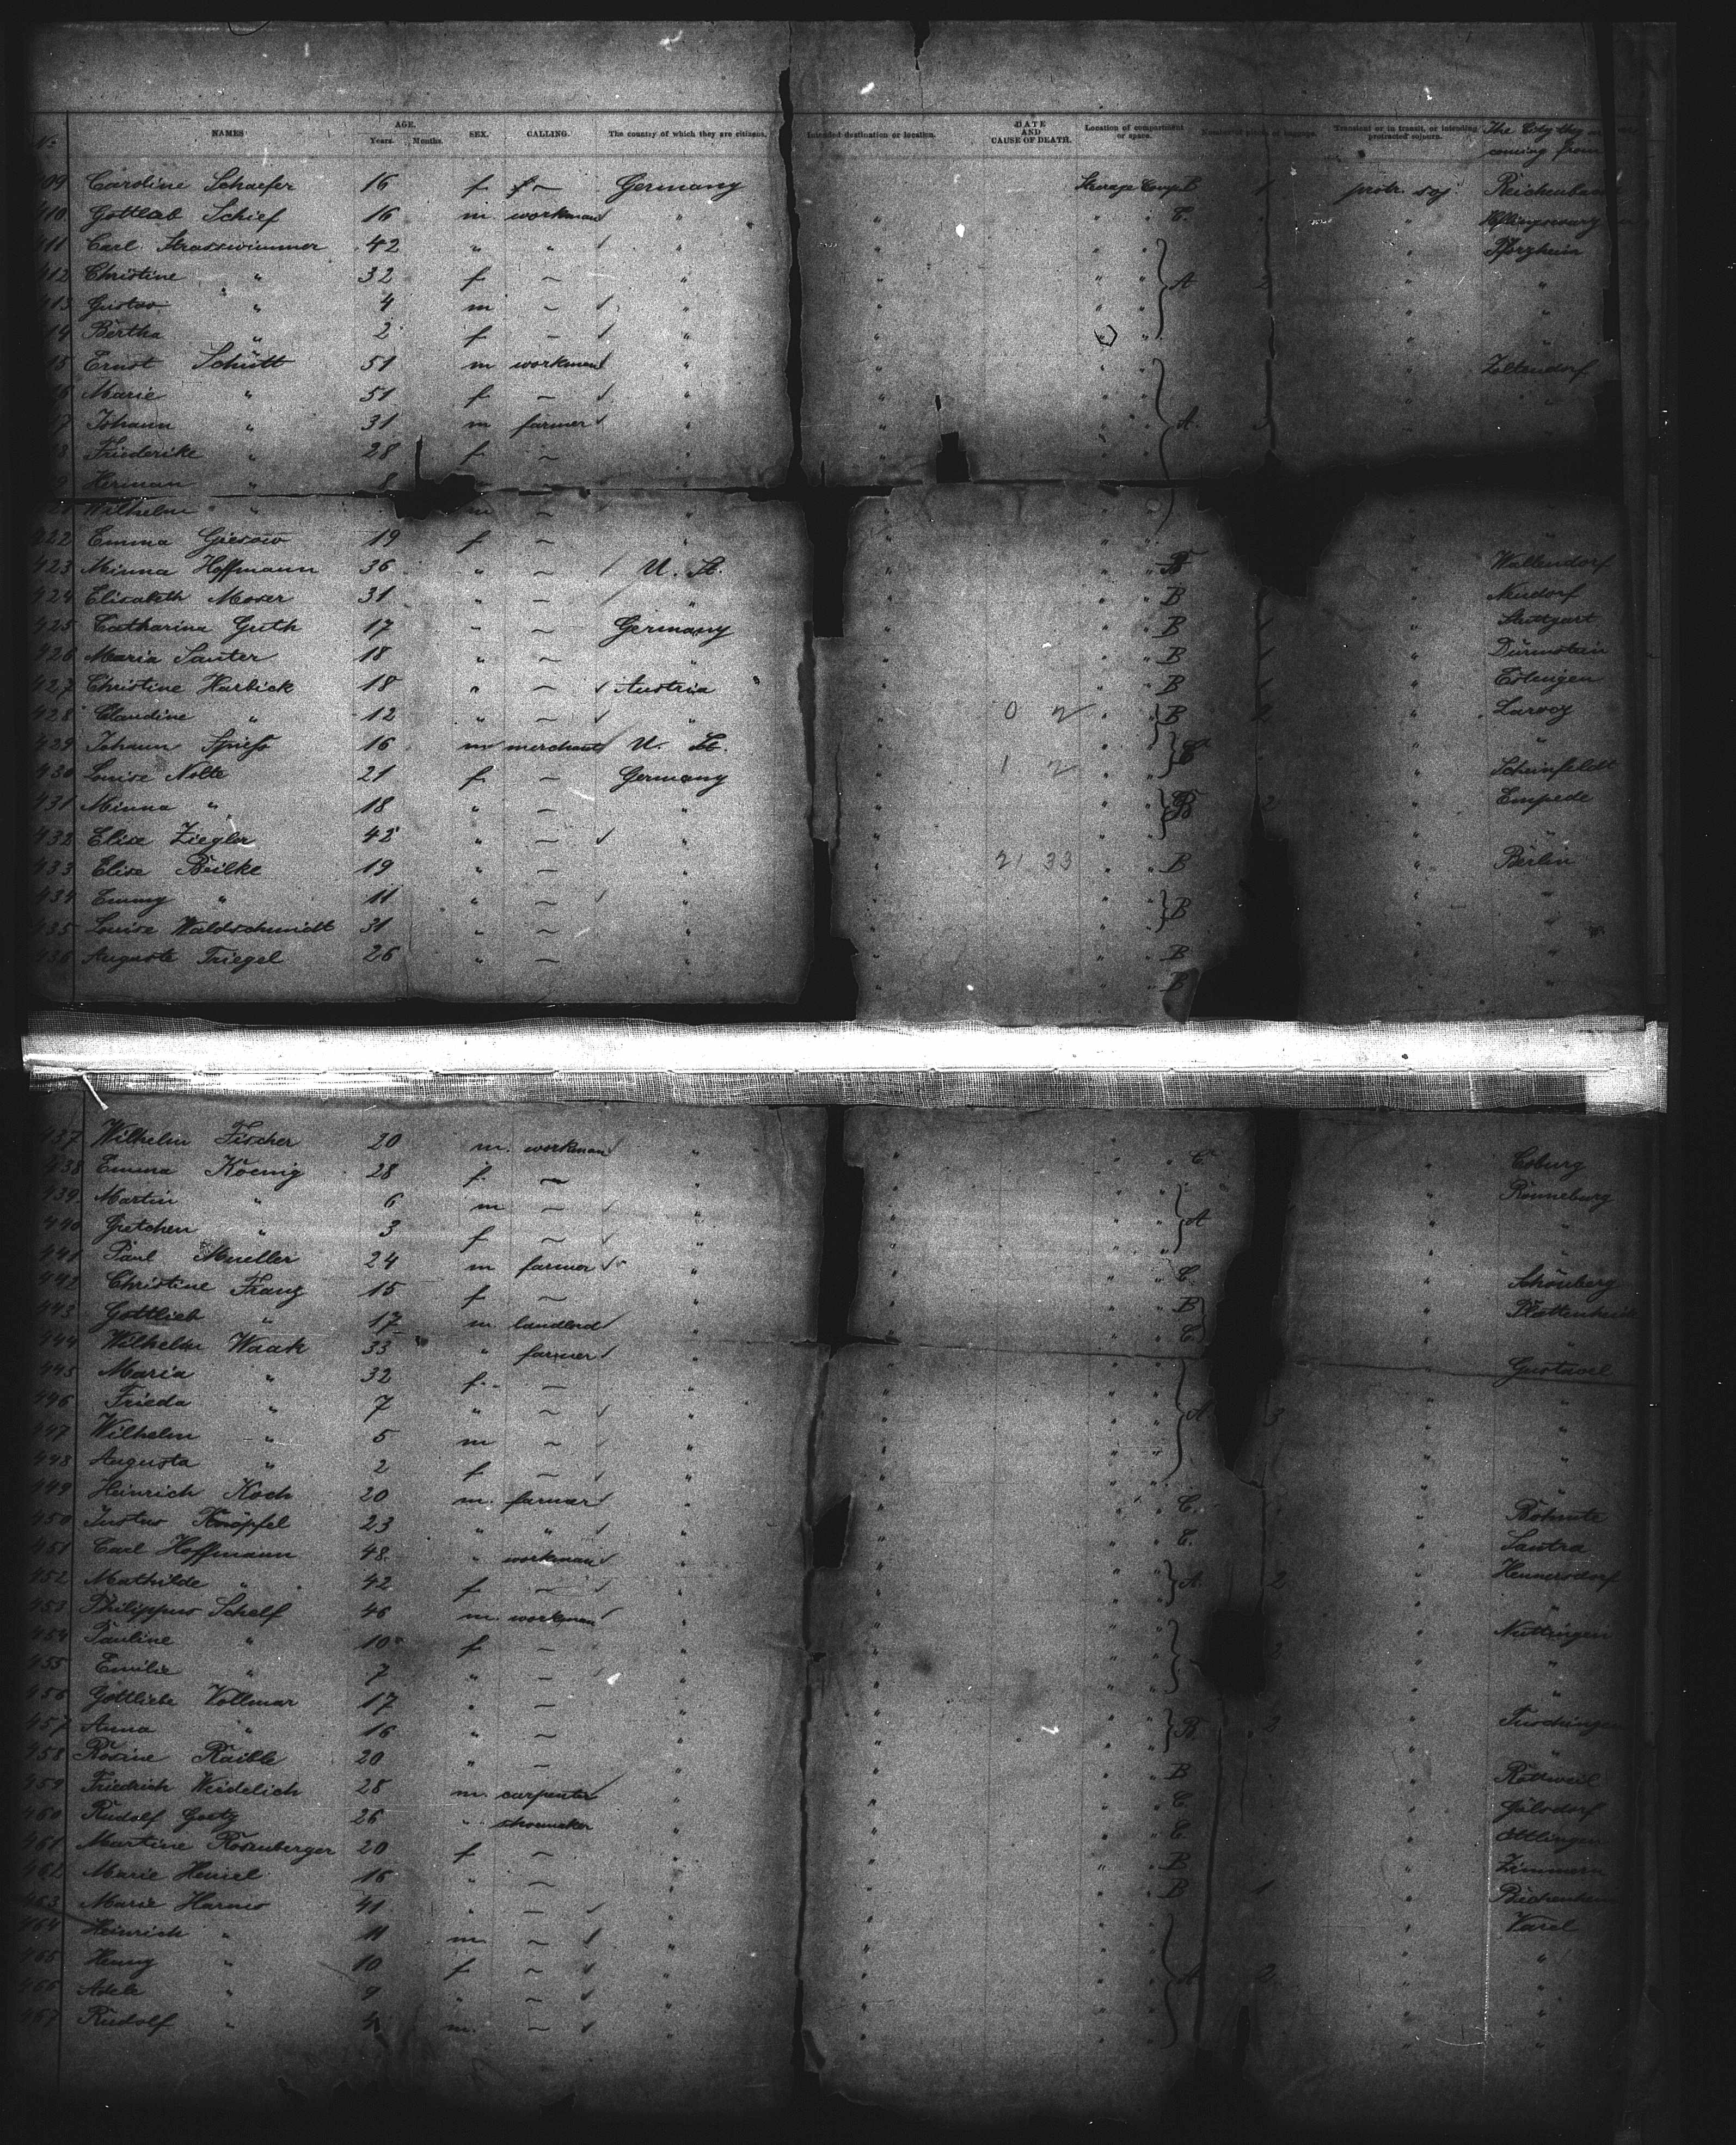 No. NAMES AGE. Years. Months. SEX. CALLING. The country of which they are citizens. Intended destination or location. DATE AND CAUSE OF DEATH. Location of compartment or space. Number of pieces of baggage. Transient or in transit, or intending protracted sojourn. The City they are coming from
09 Caroline Schaefer 16 f ~ Germany Steerage Comp B 1 protr. soj.
410 Gottlieb Schief 16 m workman " " " " C. "
411 Carl Strasswimmer 42 " " " " " " " Pforzheim
412 Christine " 32 f ~ " " " " A 2 " "
413 Gustav " 4 m ~ " " " " " "
14 Bertha " 2 f ~ " " " " " "
15 Ernst Schütt 51 m workman " " " " " Zoltendorf
16 Marie " 51 f ~ " " " " " "
17 Johann " 31 m farmer " " " " A 3 "
18 Friederike " 28 f ~ " "
19 Herman " 8 ~ "
21 Wilhelm " m ~ "
422 Emma Giesow 19 f ~ "
423 Minna Hoffmann 36 " ~ U. St. " " " B " Wallendorf
424 Elisabeth Moser 31 " ~ " " " " B " Neudorf
425 Catharina Guth 17 " ~ Germany " " " B 1 " Stuttgart
426 Maria Sauter 18 " ~ " " " " B 1 " Dürmstein
427 Christine Harbick 18 " ~ Austria " " " B 1 " Eslingen
428 Claudine " 12 " ~ " " 0 2 " " B 2 "
429 Johann Spiess 16 m merchant U. St. " " " C "
430 Louise Nolte 21 f ~ Germany " 1 2 " " Scheinfeldt
431 Minna " 18 " ~ " " " " B 2 " Empede
432 Elise Ziegler 42 " ~ " " " " "
433 Elise Beilke 19 " ~ " " 21 33 " " B " Berlin
434 Emmy " 11 " ~ " " " " " "
435 Louise Waldschmidt 31 " ~ " " " " B " "
436 Auguste Triegel 26 " ~ " " " " B " "
" " B " "
437 Wilhelm Fischer 20 m. workman " " " " C. " Coburg
438 Emma Koenig 28 f. ~ " " " " " Ronneburg
439 Martin " 6 m ~ " " " " A " "
440 Gretchen " 3 f ~ " " " " " "
441 Paul Mueller 24 m farmer " " " " C. " Schönberg
442 Christine Franz 15 f ~ " " " " B "
443 Gottlieb " 17 m landlord " " " " C. " "
444 Wilhelm Waak 33 " farmer " " " " " Gustavel
445 Maria " 32 f. ~ " " " " " "
446 Frieda " 7 " ~ " " " " A. 3 " "
447 Wilhelm " 5 m ~ " " " " " "
448 Augusta " 2 f ~ " " " " " "
449 Heinrich Koch 20 m. farmer " " " " C. " Bohmte
450 Justus Knöpfel 23 " " " " " " C. " Sontra
451 Carl Hoffmann 48 " workman " " " " A. 2 " Hennersdorf
452 Mathilde " 42 f ~ " " " " " "
453 Philippus Schelf 46 m. workman " " " " " Nuttingen
454 Pauline " 10 f ~ " " " " 2 " "
455 Emilie " 7 " ~ " " " " " "
456 Gottliebe Vollmar 17 " ~ " " " "
457 Anna " 16 " ~ " " " " B. 2 " "
458 Rosine Raible 20 " ~ " " " " B " Rottweil
459 Friedrich Weidelich 28 m. carpenter " " " " C. " Gölsdorf
460 Rudolf Goetz 26 " shoemaker " " " " C. "
461 Martine Rosenberger 20 f ~ " " " " B " Zimmern
462 Marie Heniel 16 " ~ " " " " B 1 "
463 Marie Harms 41 " ~ " " " " " Varel
464 Heinrich " 11 m. ~ " " " " " "
465 Henny " 10 f ~ " " " " A. 2 " "
466 Adele " 9 " ~ " " " " " "
467 Rudolf " 4 m. ~ " " " " " "